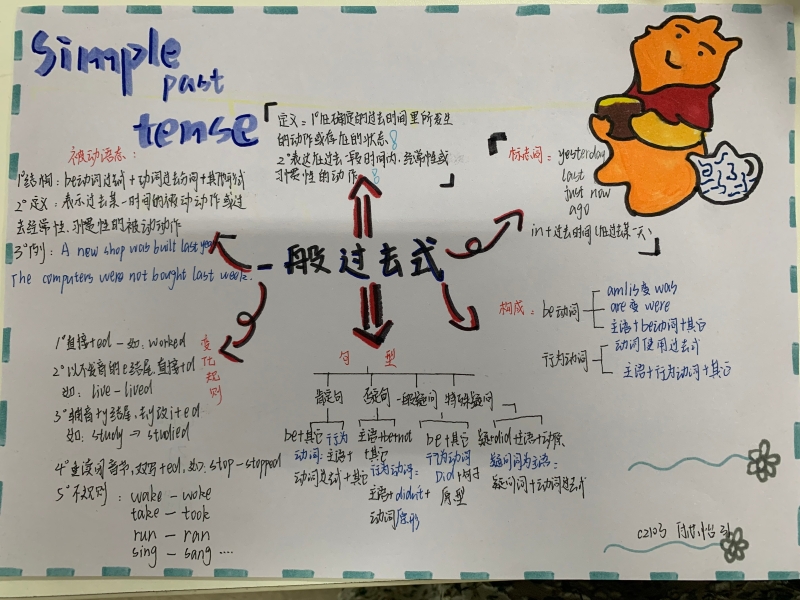 Simple
past
tense
定义：1°在确定的过去时间里所发生
的动作或存在的状态
2°表达在过去一段时间内，经常性或
习惯性的动作
标志词：yesterday
last
just now
ago
in+过去时间(在过去某一天)
被动语态：
1°结构：be动词过去式+动词过去分词+其
2°定义：表示过去某一时间的被动动作或过
去经常性、习惯性的被动动作
3°例：A new shop was built last year
The computers were not bought last week.
一般过去式
构成：be动词
am is变was
are变were
主语+be动词+其它
行为动词
动词使用过去式
主语+行为动词+其它
变化规则
1°直接+ed-如：worked
2°以不发音的e结尾，直接+d
如：live-lived
3°辅音+y结尾，去y改i+ed
如：study→studied
4°重读闭音节，双写+ed，如：stop-stopped
5°不规则：wake-woke
take-took
run-ran
sing-sang ....
句型
肯定句 否定句 一般疑问 特殊疑问
be+其它 行为
动词：主语+
动词过去式+其它
主语+be not
+其它
行为动词：
主语+didn't+
动词原形
be+其它
行为动词
Did+
原型
疑+did+主语+动原
疑问词为主语：
疑问词+动词过去式
C2103